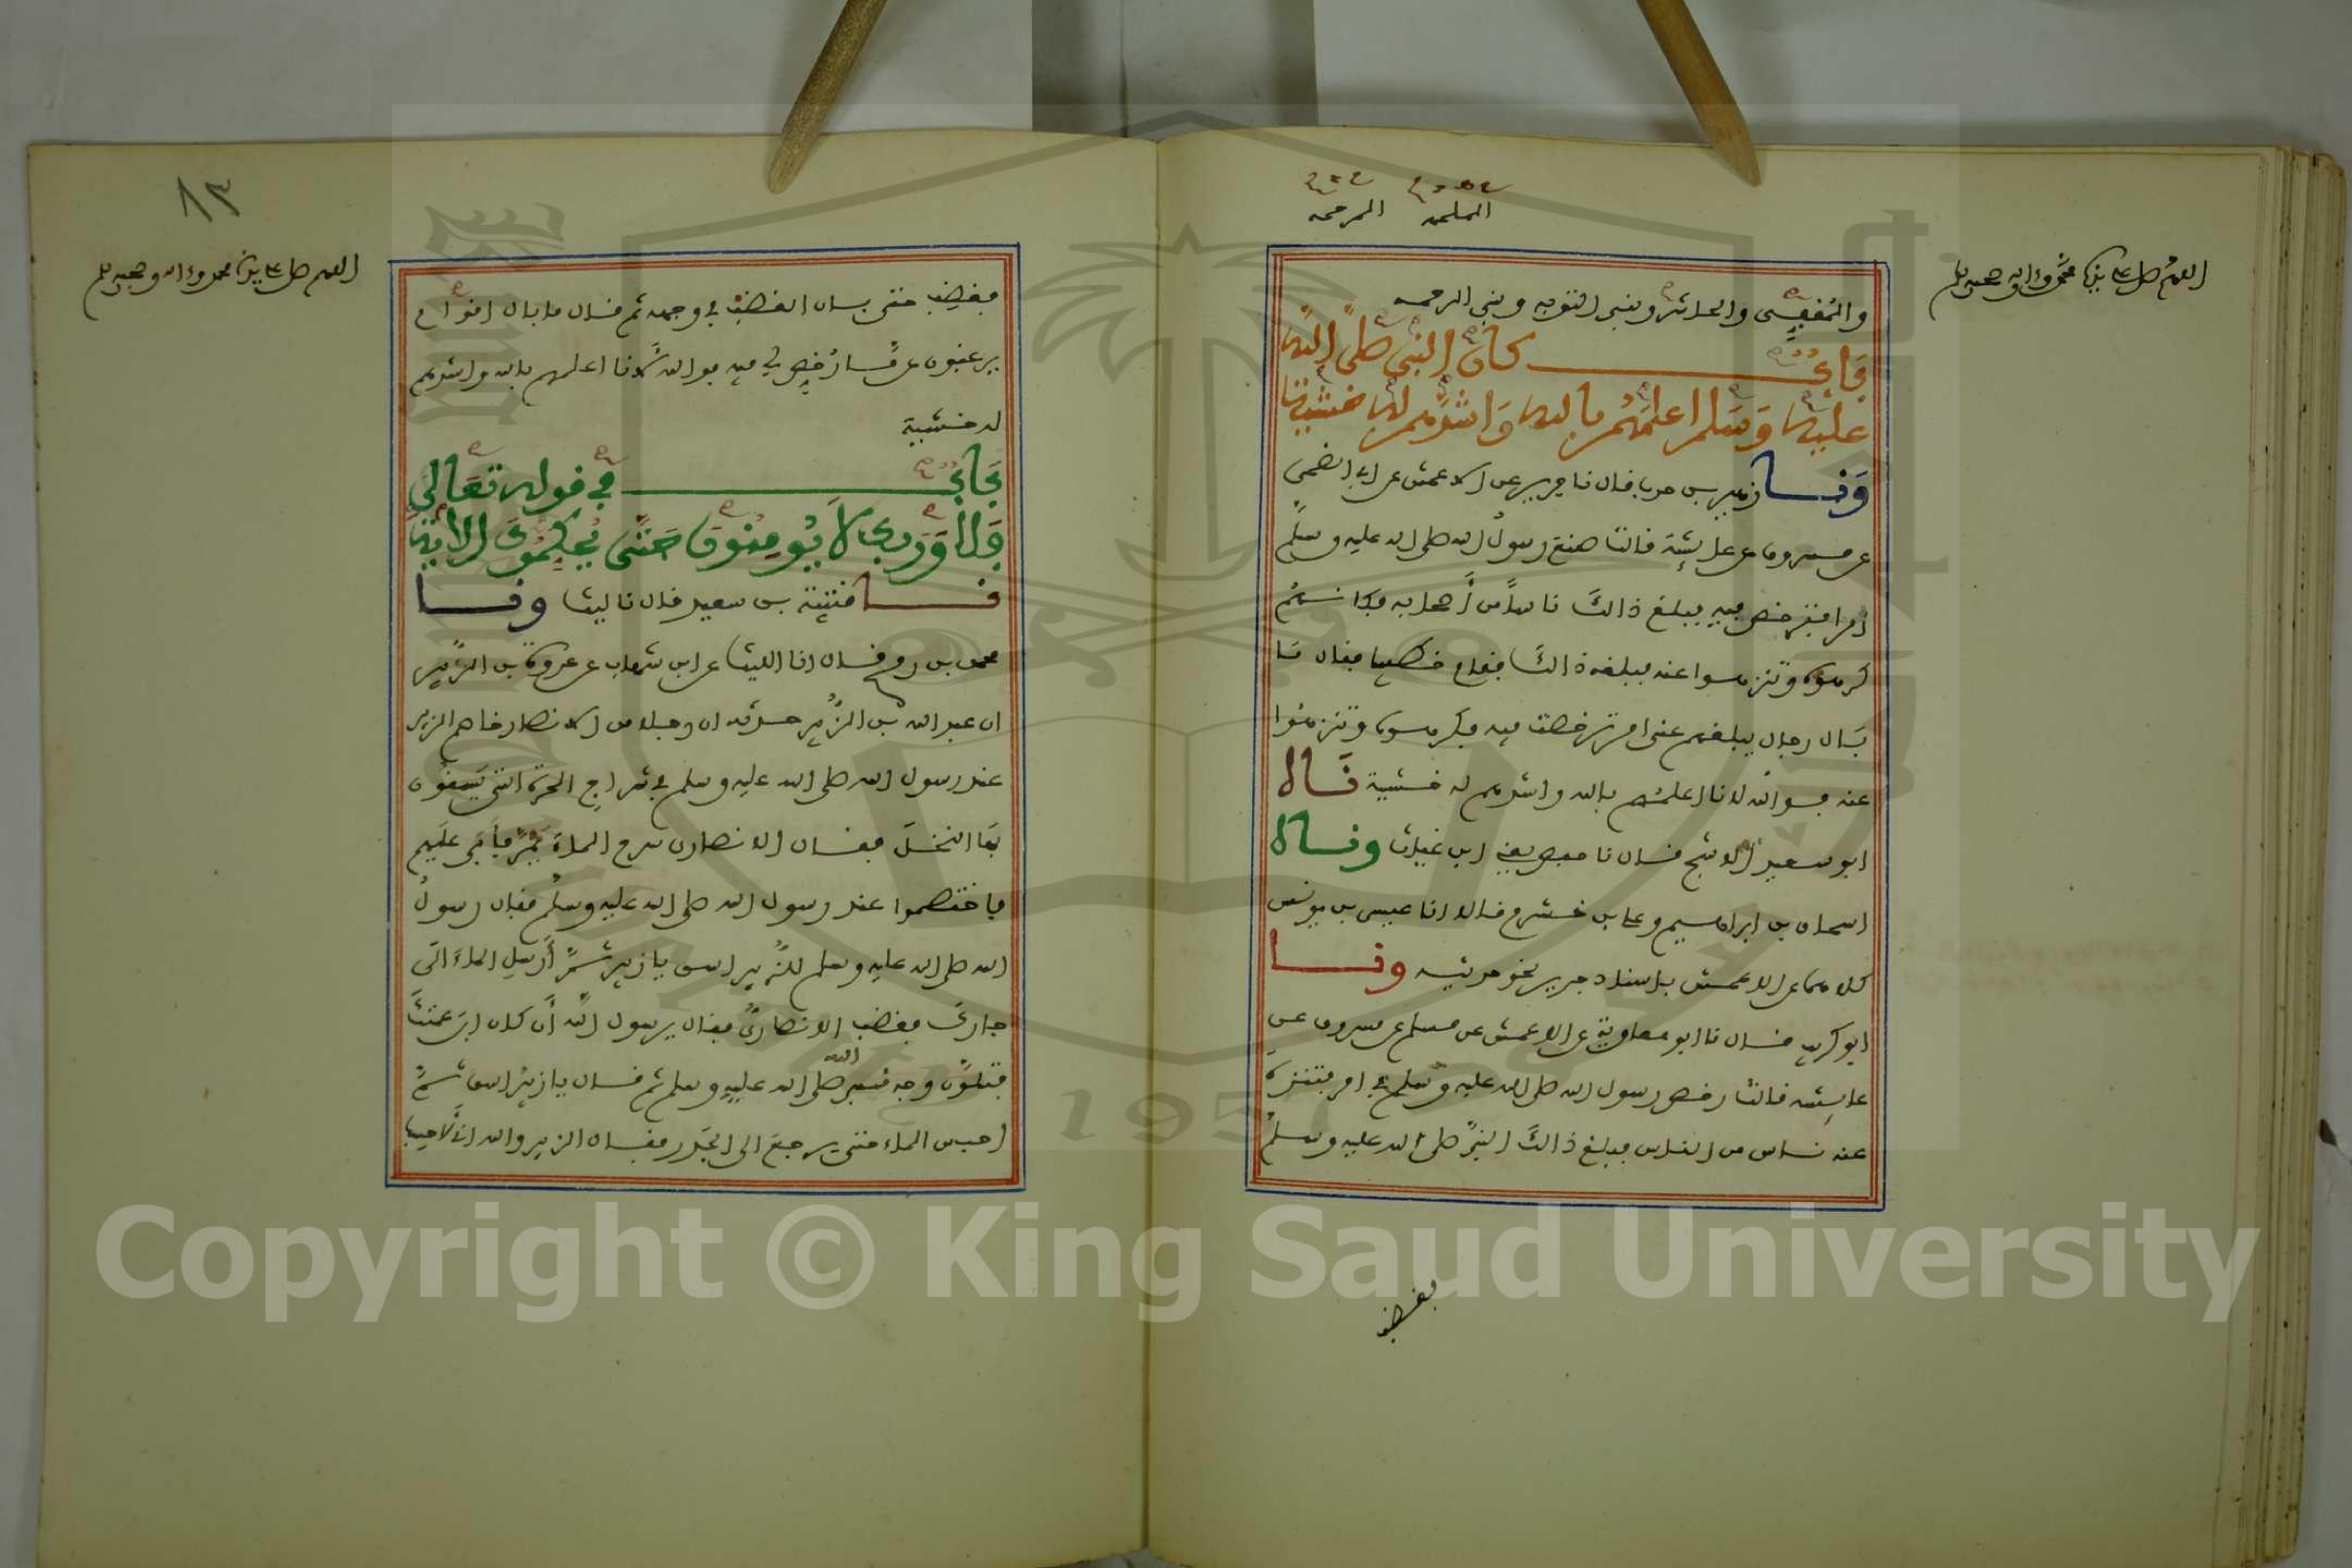 الملحمه المرحمه
اللهم صل على سيدنا محمد وءاله وصحبه وسلم
والمُقفِّى والحاشر ونبى التوبه ونبى الرحمه
بَابُ كان النبى صلى الله
عليه وَسلم اعلمَهُم بالله وَاشدهم له خشية
وَنا زهير بن حرب قال نا جرير عن الاعمش عن ابى الضحى
عن مسروق عن عايشة قالت صنع رسول الله صلى الله عليه وسلم
امرا فترخص فيه فبلغ ذالك ناسا من أصحابه فكانهم
كرهوه وتنزهوا عنه فبلغه ذالك فقام خطيبا فقال مَا
بَال رجال بلغهم عنى امر ترخصت فيه فكرهوه وتنزهُوا
عنه فوالله لانا اعلمهم بالله واشدهم له خشية نَا
ابو سعيد الاشج قال نا حفص يعنى ابن غياث ونا
اسحاق بن ابراهيم وعلى بن خشرم قالا انا عيسى بن يونس
كلاهما عن الاعمش باسناد جرير نحو حديثه ونا
ابو كريب قال نا ابو معاوية عن الاعمش عن مسلم عن مسروق عن
عايشه قالت رخص رسول الله صلى الله عليه وسلم فى امر فتنزه
عنه ناس من الناس فبلغ ذالك النبى صلى الله عليه وسلم
فغضب
٨٣
اللهم صل على سيدنا محمد وءاله وصحبه وسلم
فغضب حتى بان الغضب فى وجهه ثم قال ما بال اقوام
يرغبون عن مَا رُخِّص لى فيه فوالله لانا اعلمهم بالله واشدهم
له خشية
بَابُ فى قوله تعَالى
فلا وَربك لا يُومنُون حَتى يُحكِّمُوك الاية
نا قتيبة بن سعيد قال نا ليث ونا
محمد بن رمح قال انا الليث عن ابن شهاب عن عروة بن الزبير
ان عبد الله بن الزُّبير حدثه ان رجلا من الانصار خاصم الزبير
عند رسول الله صلى الله عليه وسلم فى شراج الحرة التى يَسقُون
بهَا النخل فقال الانصارى سرح الماءَ يَمُرُّ فأبَى عليهم
فاختصموا عند رسول الله صلى الله عليه وسلم فقال رسول
الله صلى الله عليه وسلم للزُّبير اسق يا زبير ثمَّ أرسل الماءَ الى
جارك فغضب الانصارىُّ فقال يرسول الله أن كان ابن عمتك
فتلوَّن وجه نبى الله صلى الله عليه وسلم ثم قال يا زبيرُ اسق ثمَّ
احبس الماء حتى يرجعَ الى الجَدر فقال الزبير والله انى لأحسب
Copyright © King Saud University
1957